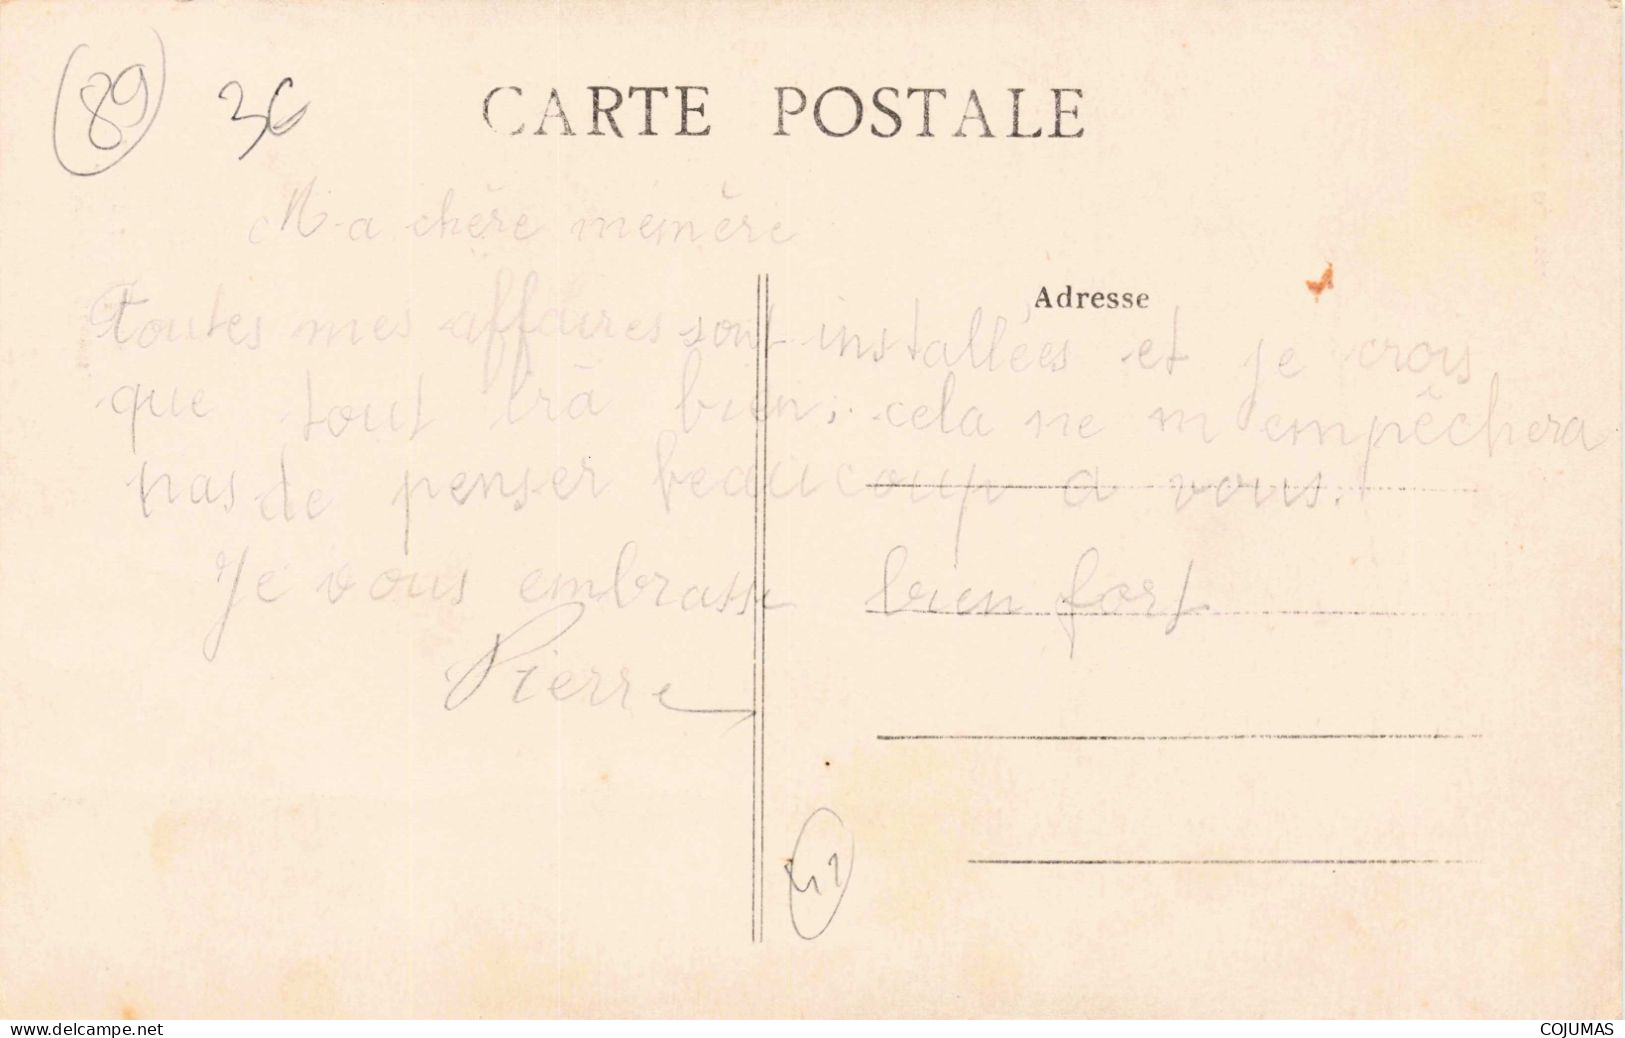 (89) 36
CARTE POSTALE
Ma chère mémère
Adresse
Toutes mes affaires sont installées et je crois
que tout irà bien; cela ne m'empêchera
pas de penser beaucoup a vous.
Je vous embrasse bien fort
Pierre
www.delcampe.net
COJUMAS